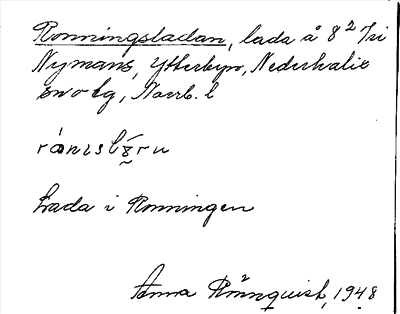 Ronningsladan, lada å 8² 7/21
Nymans, Ytterbyn, Nederkalix
sn o tg, Norrb. l
Lada i Ronningen
Anna Rönnquist, 1948